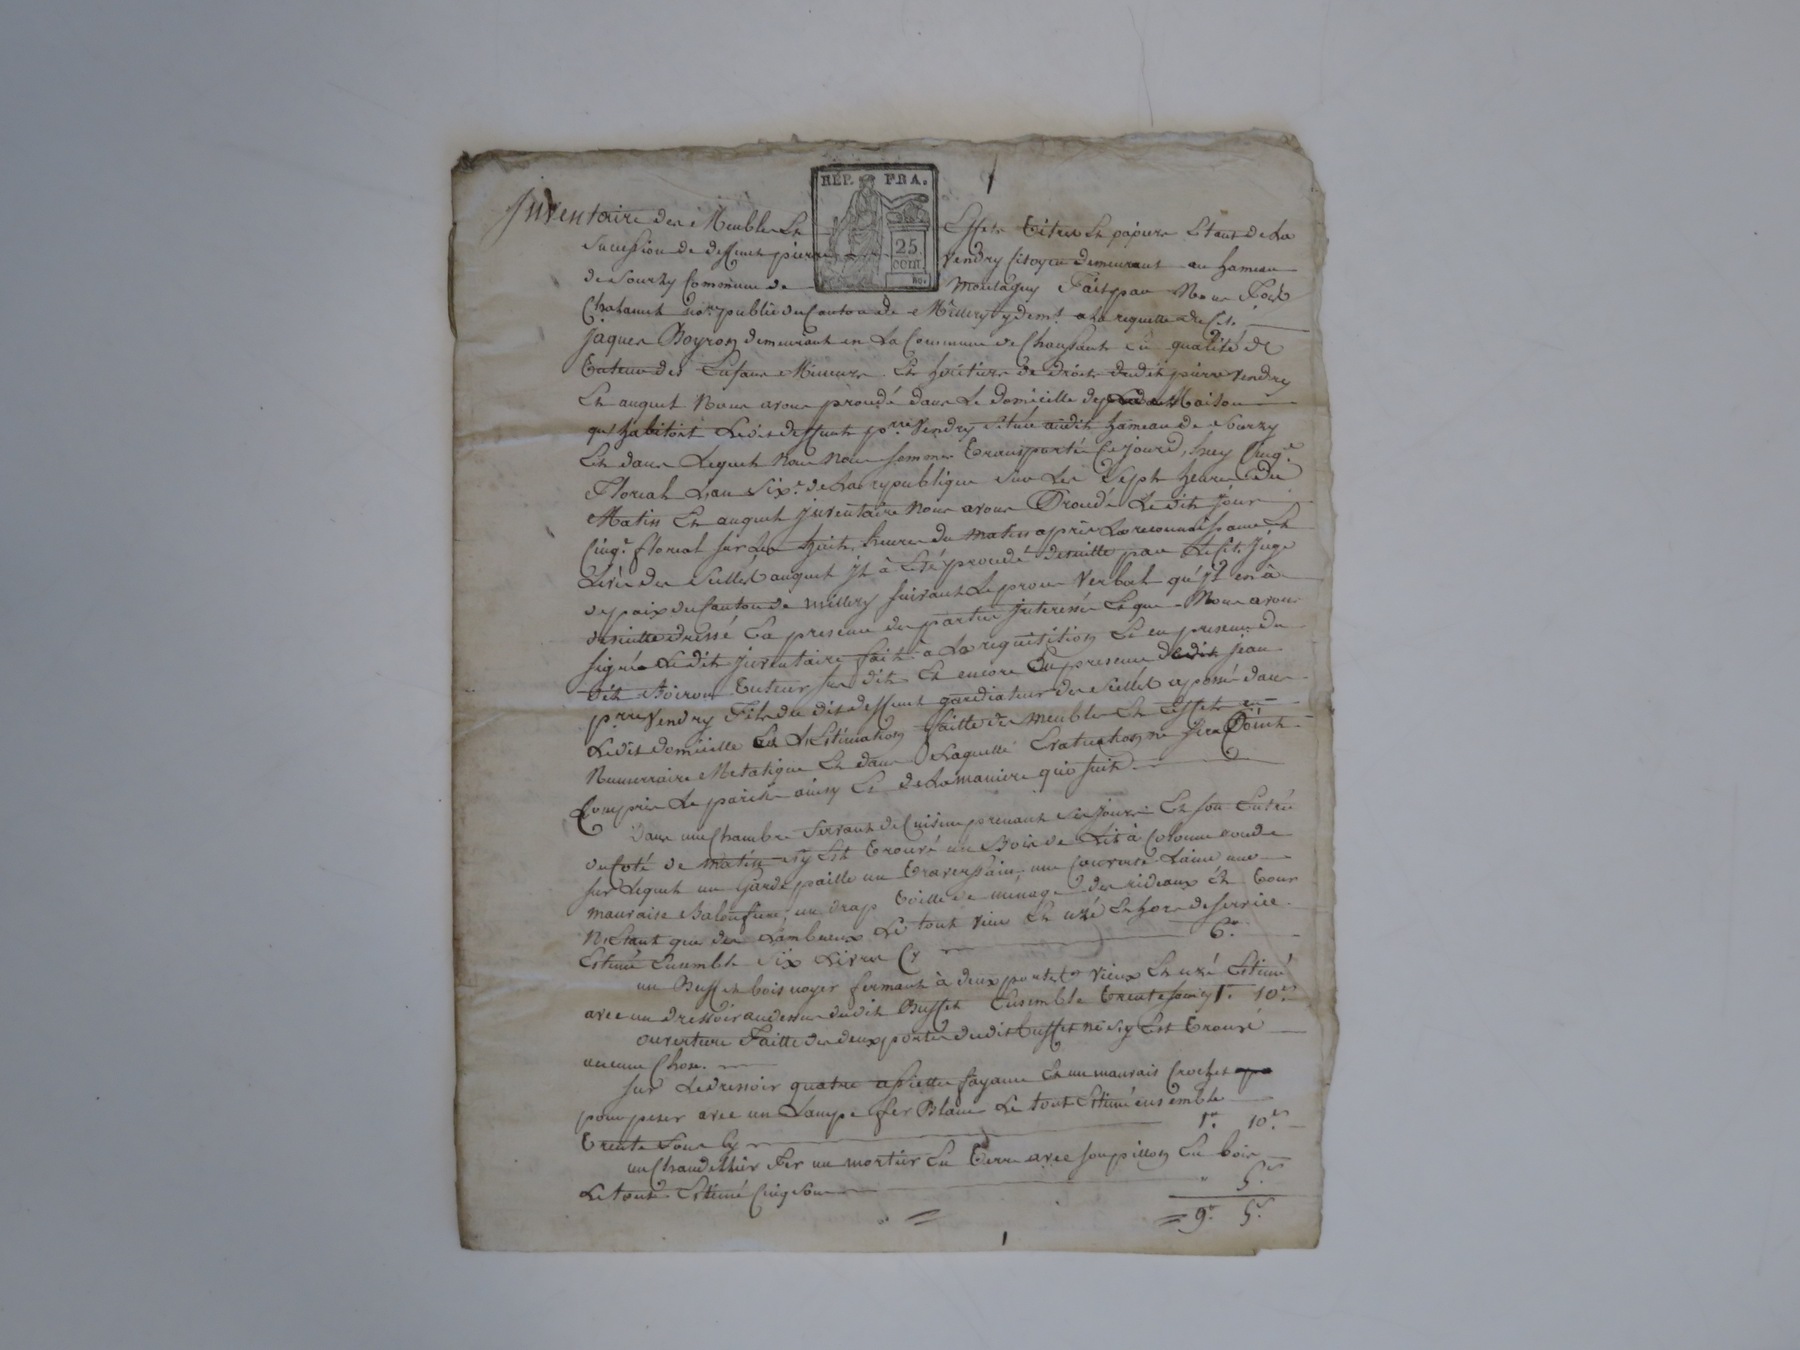 REP. FRA.
25 cent.
Inventaire des Meubles Et Effets titres Et papiers Etant de La
sucession de deffunt pierre Vendry Citoyen demeurant au hameau
de Sourzy Commune de Montagny Fait par Nous
not. public du Canton de Millery y dem.t a La requette du Cit.
Jaques Boyron demeurant en La Commune de Chaussant En qualité de
tuteur des Enfans Mineurs Et héritiers de droits dudit pierre Vendry
Et auquel Nous avons proudé dans Le domicille de Maison
qu'habitoit Ledit deffunt p.rre Vendry situé audit hameau de Sourzy
Et dans Lequel Nous Nous sommes transporté Ce jourd'huy Cinq.e
Floreal L'an Six.e de La republique sur Les Sept heures du
Matin Et auquel Inventaire Nous avons Proudé Ledit jour
Cinq.e floreal sur Les huit heures du matin apprès La reconnaissance Et
Levée des Scellés auquel Il à Eté proudé desuitte par Le Cit. Juge
de paix du Canton de Millery suivant Le proces Verbal qu'Il en à
desuitte dressé En presence des parties Interessés Et que Nous avons
signés Ledit Inventaire fait à La requitition Et en presence du
dit Boiron tuteur sus dit Et encore En presence dedit jean
p.rre Vendry Fils du dit deffunt gardiateur des Scellés aposés dans
Ledit domicille Et L'Estimation faitte des meubles Et Effets en
Numerraire Metalique Et dans Laquelle Evaluation ne sera Point
Compris Le parisis ainsy Et de La maniere qui suit
Dans une Chambre servant de Cuisine prenant ses jours Et son Entrée
du Coté de matin s'y Est trouvé un Bois de Lit à Colonne ronde
sur Lequel un garde paille un traverssain, une Couverte Laine une
mauvaise Baloufiere, un drap toille de menage des rideaux Et tour
N'Etant que des Lambeaux Le tout vieu Et uzé Et hors de service
Estimé Ensemble Six Livres Cy 6.
un Buffet bois noyer fermant à deux portes vieux Et uzé Estimé
avec un dressoir audessus dudit Buffet Ensemble trente sous 1. 10.
ouverture Faitte des deux portes dudit buffet ne s'y Est trouvé
aucune Chose.
sur Le dressoir quatre assiettes fayance Et un mauvais Crochet
pour peser avec un Lampe fer Blanc Le tout Estimé ensemble
trente sous Cy 1. 10.
un Chandellier Fer un mortier En terre avec son pillon En bois
Le tout Estimé Cinq sous 5.
9. 5.